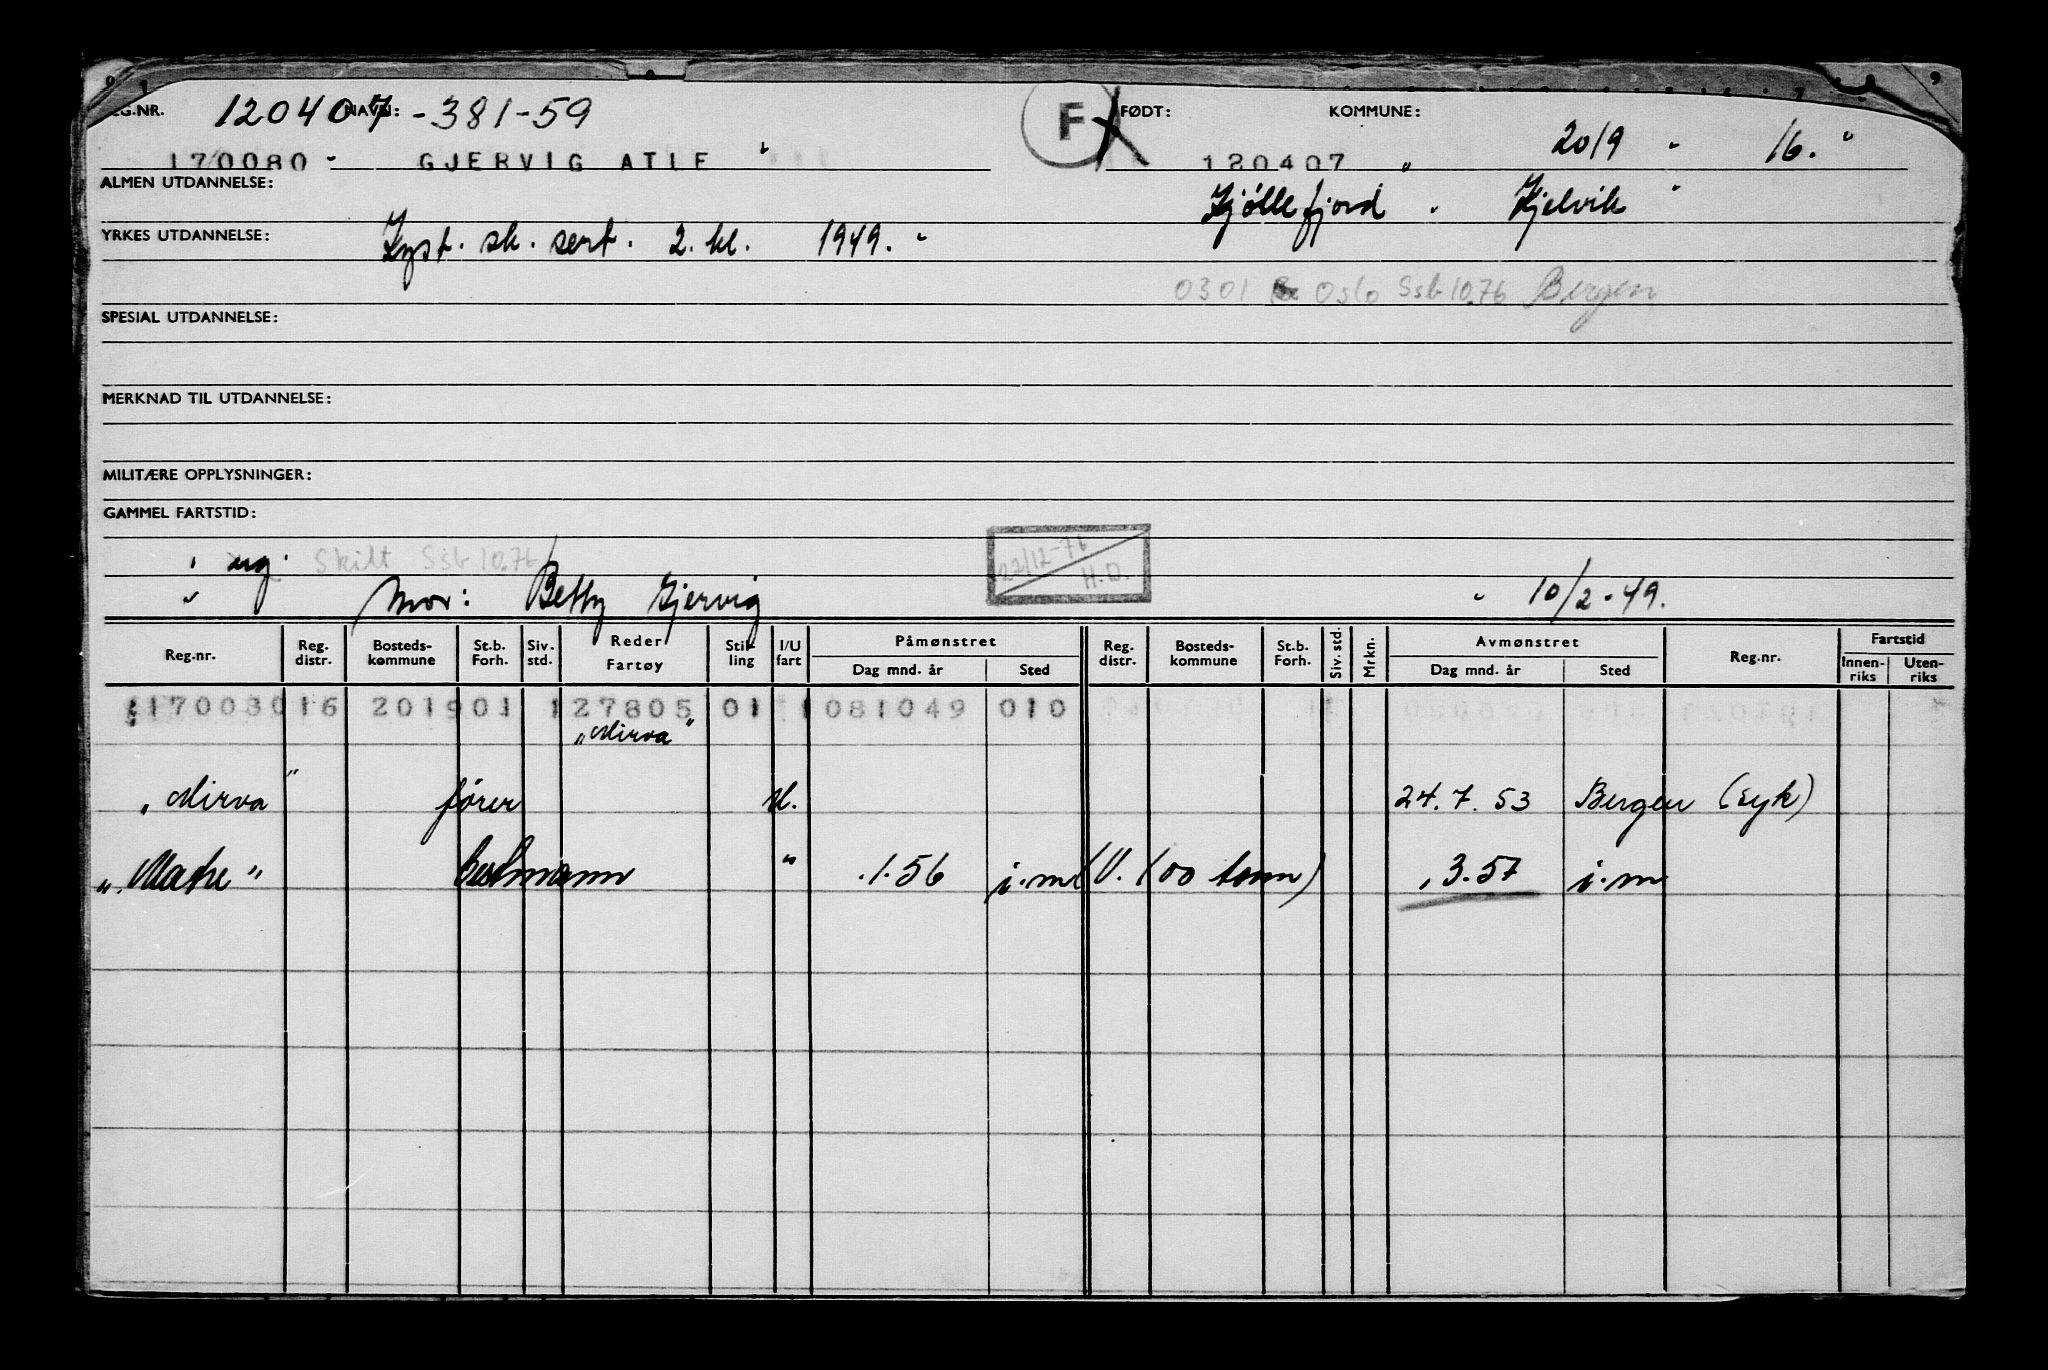 REG.NR. NAVN: FØDT: KOMMUNE:
120407-381-59 F 2019 16.
170080 GJERVIG ATLE 120407
ALMEN UTDANNELSE: Kjøllefjord Kjelvik
YRKES UTDANNELSE: Kyst. sk. sert. 2. kl. 1949.
0301 Oslo Ssb 10.76 Bergen
SPESIAL UTDANNELSE:
MERKNAD TIL UTDANNELSE:
MILITÆRE OPPLYSNINGER:
GAMMEL FARTSTID:
ug. Skilt Ssb 10.76 22/12-76 H.D.
Mor: Betty Gjervig 10/2-49.
Reg.nr. Reg. distr. Bosteds-kommune St.b. Forh. Siv. std. Reder Fartøy Stil-ling I/U fart Påmønstret Dag mnd. år Sted Reg. distr. Bosteds-kommune St.b. Forh. Siv. std. Mrkn. Avmønstret Dag mnd. år Sted Reg.nr. Fartstid Innen-riks Uten-riks
170080 16 2019 01 1 27805 01 1 081049 010
"Mirva"
"Mirva" fører U. 24.7.53 Bergen (syk)
bestmann " 1.56 i.m. (U. 100 tonn) 3.57 i.m